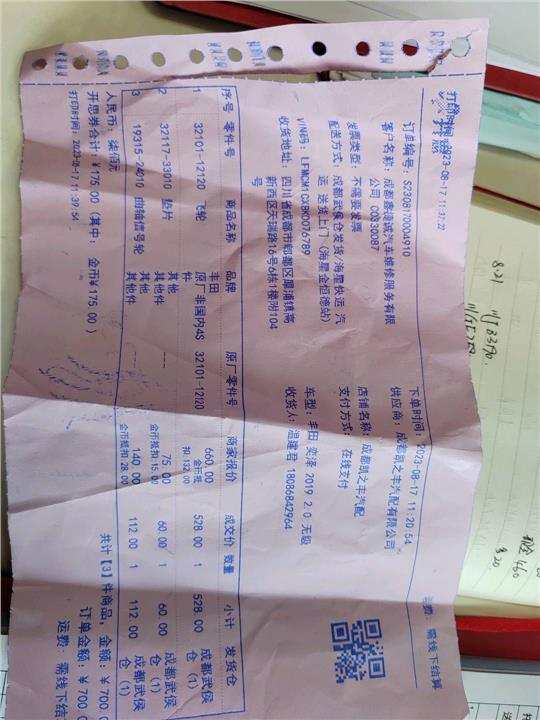 打印时间: 2023-08-17 11:37:22
运费: 需线下结算
订单编号: S2308170004910
下单时间: 2023-08-17 11:20:54
客户名称: 成都鑫捷诚汽车维修服务有限公司 C0830087
供应商: 成都凯之丰汽配有限公司
发票类型: 不需要发票
店铺名称: 成都凯之丰汽配
配送方式: 成都武侯仓发货/海星快运 汽运 送货上门 (海星金恒德站)
支付方式: 在线支付
VIN码: LFMCM1CXBK0076789
车型: 丰田 奕泽 2019 2.0 无级
收货地址: 四川省成都市郫都区犀浦镇高新西区天瑞路16号6栋1楼附104号
收货人: 温建君 18086842964
序号 零件号 商品名称 品牌 原厂零件号 商家报价 成交价 数量 小计 发货仓
1 32101-12120 飞轮 丰田 原厂非国内4S件 32101-12120 660.00 金币抵扣: 132.00 528.00 1 528.00 成都武侯仓 (1)
2 32117-33010 垫片 其他 其他件 --- 75.00 金币抵扣 15.00 60.00 1 60.00 成都武侯仓 (1)
3 19315-24010 曲轴信号轮 其他 其他件 --- 140.00 金币抵扣 28.00 112.00 1 112.00 成都武侯仓 (1)
共计【3】件商品, 订单金额: ¥ 700.0
人民币: 柒佰元
运费: 需线下结
开思券合计: ¥175.00 (其中: 金币¥175.00 )
打印时间: 2023-08-17 11:39:54
8.21
8.20